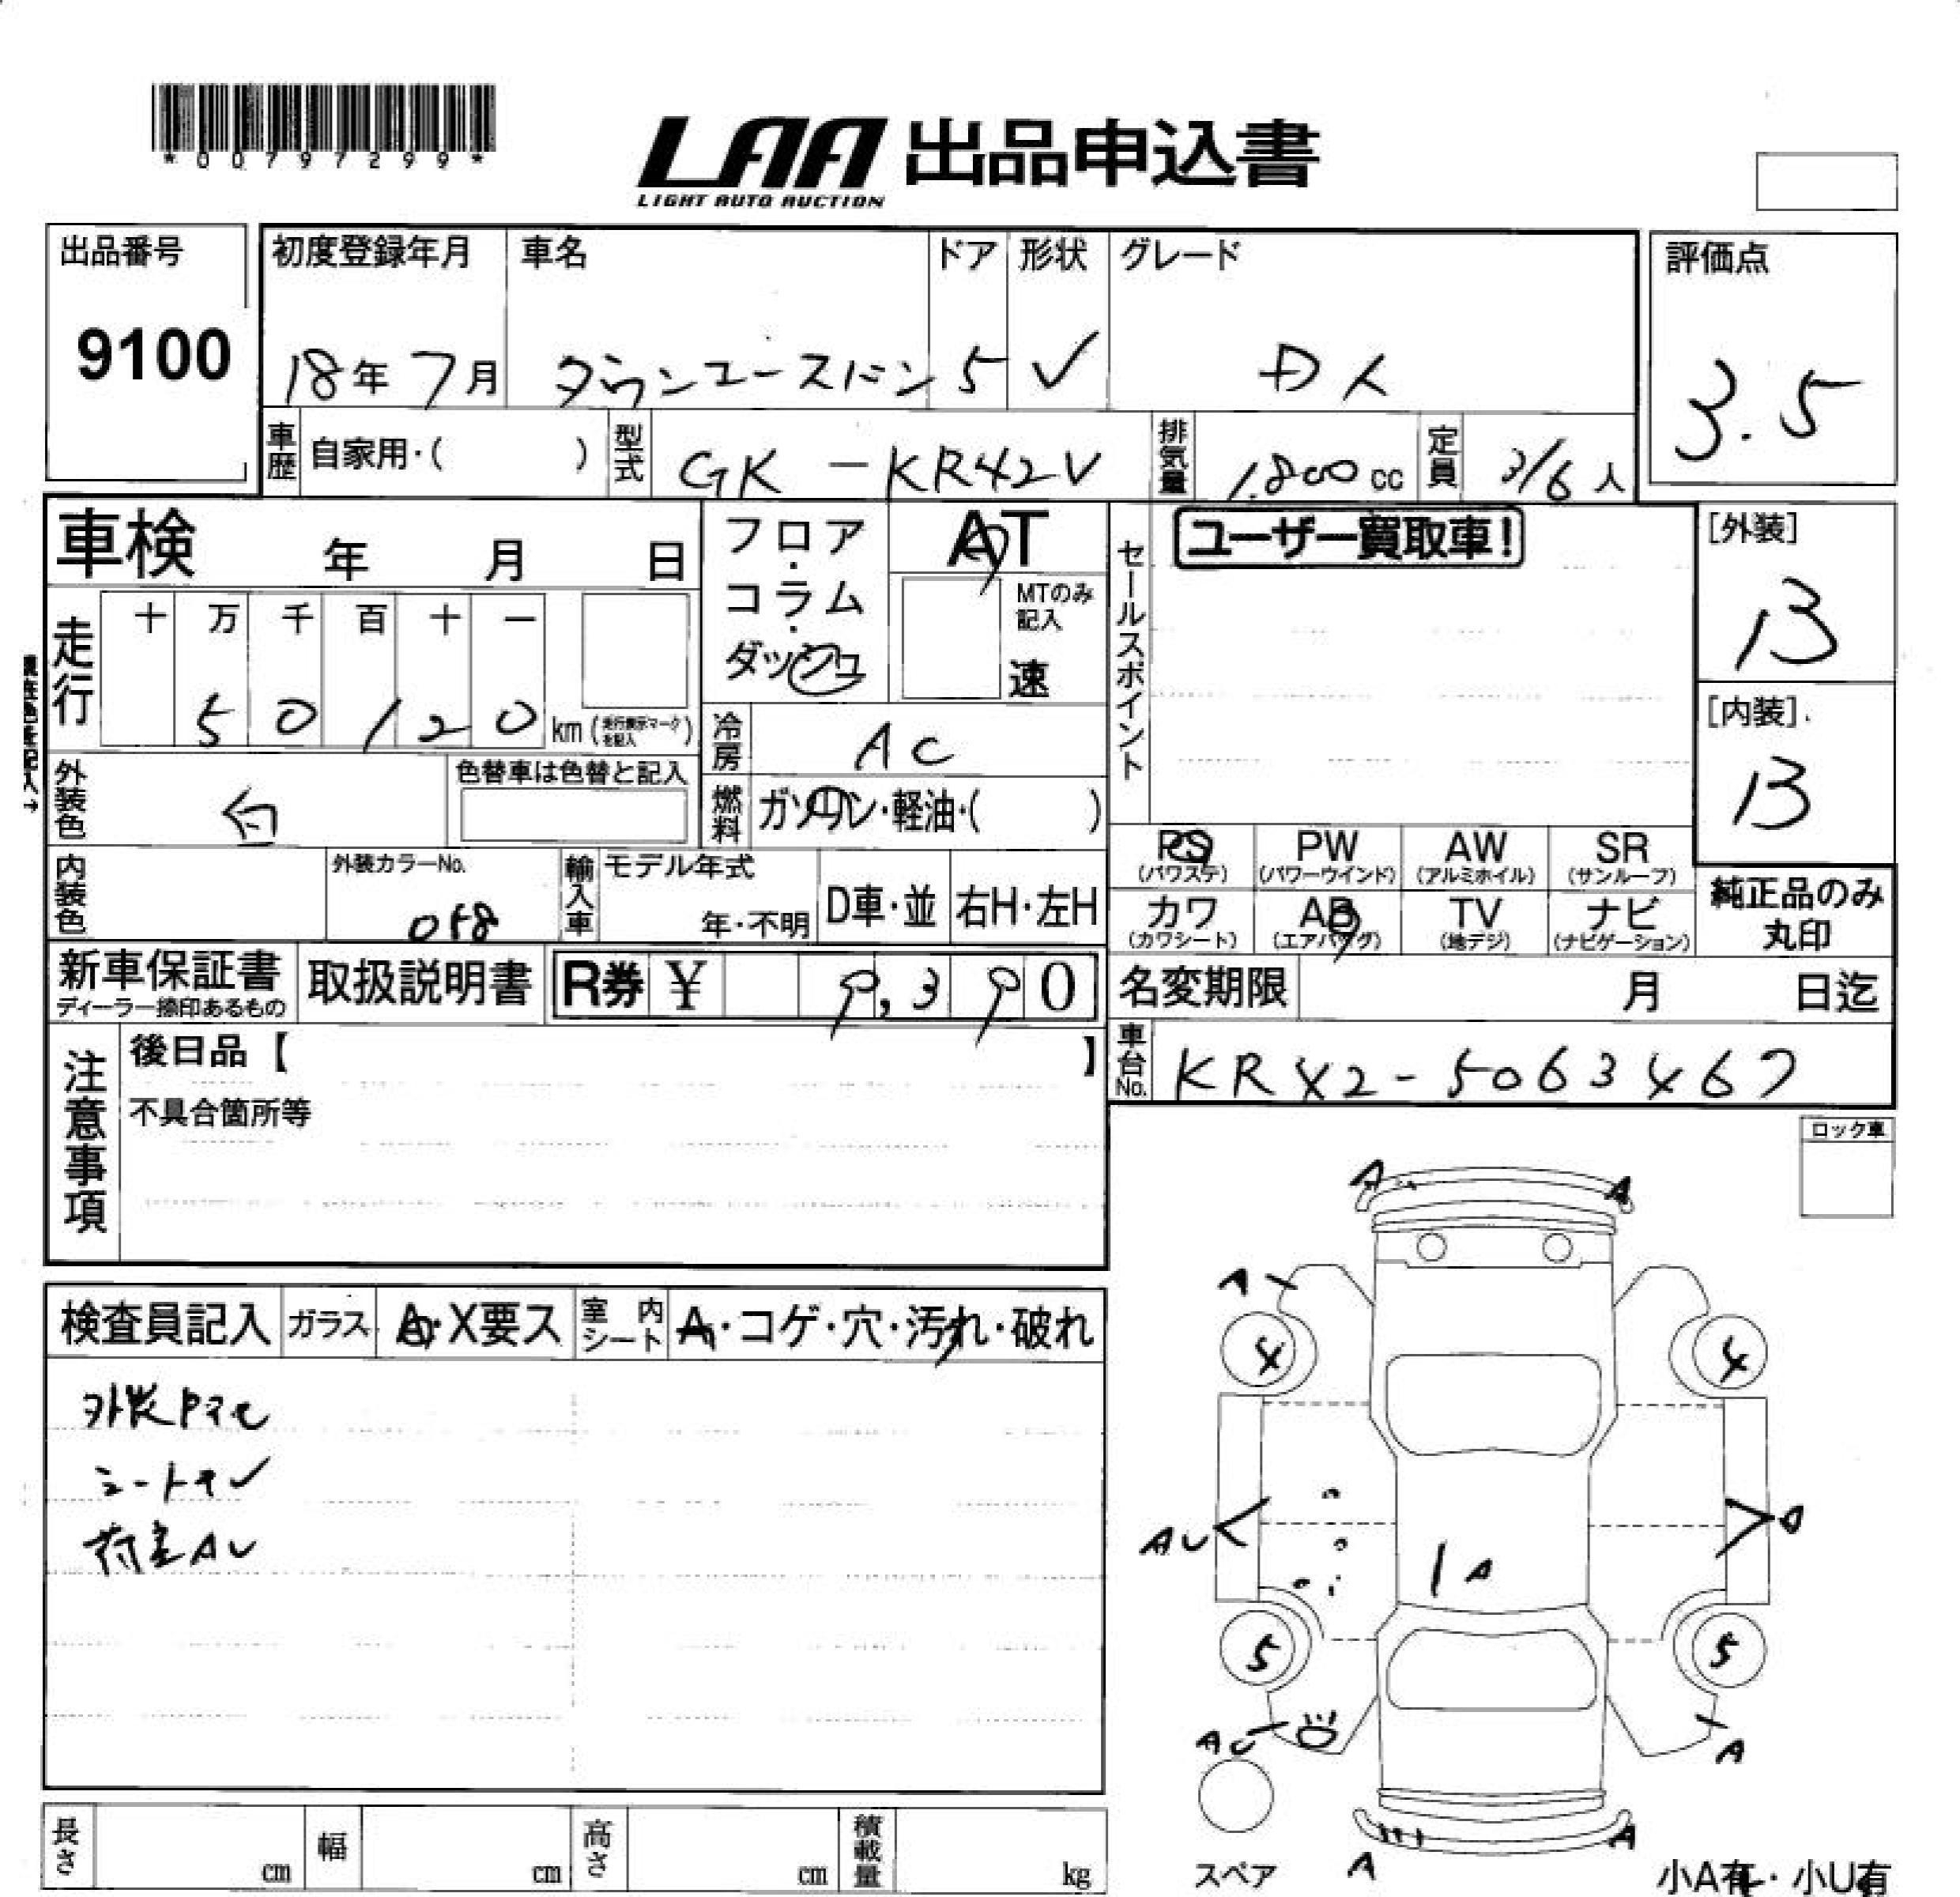 *00797299*
LAA 出品申込書
LIGHT AUTO AUCTION
出品番号
9100
初度登録年月 車名 ドア 形状 グレード
18年 7月 タウンエースバン 5 V DX
評価点
3.5
車歴 自家用・( ) 型式 GK-KR42V 排気量 1.800cc 定員 3/6人
車検 年 月 日
フロア・コラム・ダッシュ
AT
MTのみ記入
速
セールスポイント
ユーザー買取車!
[外装]
B
[内装]
B
走行 十 万 千 百 十 一
50120 km (走行表示マークを記入)
冷房 AC
外装色 白 色替車は色替と記入
燃料 ガソリン・軽油・( )
内装色 外装カラーNo. 058
輸入車 モデル年式 年・不明 D車・並 右H・左H
PS (パワステ) PW (パワーウインド) AW (アルミホイル) SR (サンルーフ)
カワ (カワシート) AB (エアバッグ) TV (地デジ) ナビ (ナビゲーション)
純正品のみ丸印
新車保証書 ディーラー捺印あるもの 取扱説明書 R券 ¥ 9,390
名変期限 月 日迄
車台No. KR42-5063467
注意事項
後日品【 】
不具合箇所等
ロック車
検査員記入 ガラス A・X要ス 室内シート A・コゲ・穴・汚れ・破れ
シートキレ
荷室AU
A A
A
4 4
AU A
1 A
5 5
AU A
スペア A A
小A有・小U有
長さ cm 幅 cm 高さ cm 積載量 kg